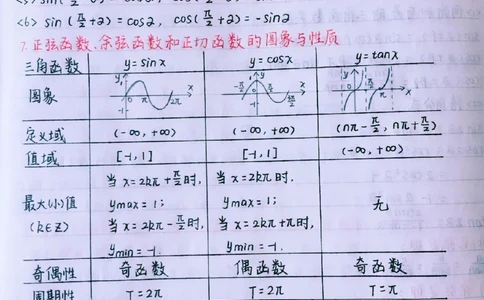 <6> sin(π/2+2)=cos2, cos(π/2+2)=-sin2
7.正弦函数、余弦函数和正切函数的图象与性质
三角函数 y=sinx y=cosx y=tanx
图象 y 1 -1 0 π 2π x y -π/2 π/2 3π/2 x y x
定义域 (-∞,+∞) (-∞,+∞) (nπ-π/2, nπ+π/2)
值域 [-1,1] [-1,1] (-∞,+∞)
最大(小)值 (k∈Z) 当x=2kπ+π/2时, ymax=1; 当x=2kπ-π/2时, ymin=-1. 当x=2kπ时, ymax=1; 当x=2kπ+π时, ymin=-1. 无
奇偶性 奇函数 偶函数 奇函数
周期性 T=2π T=2π T=π